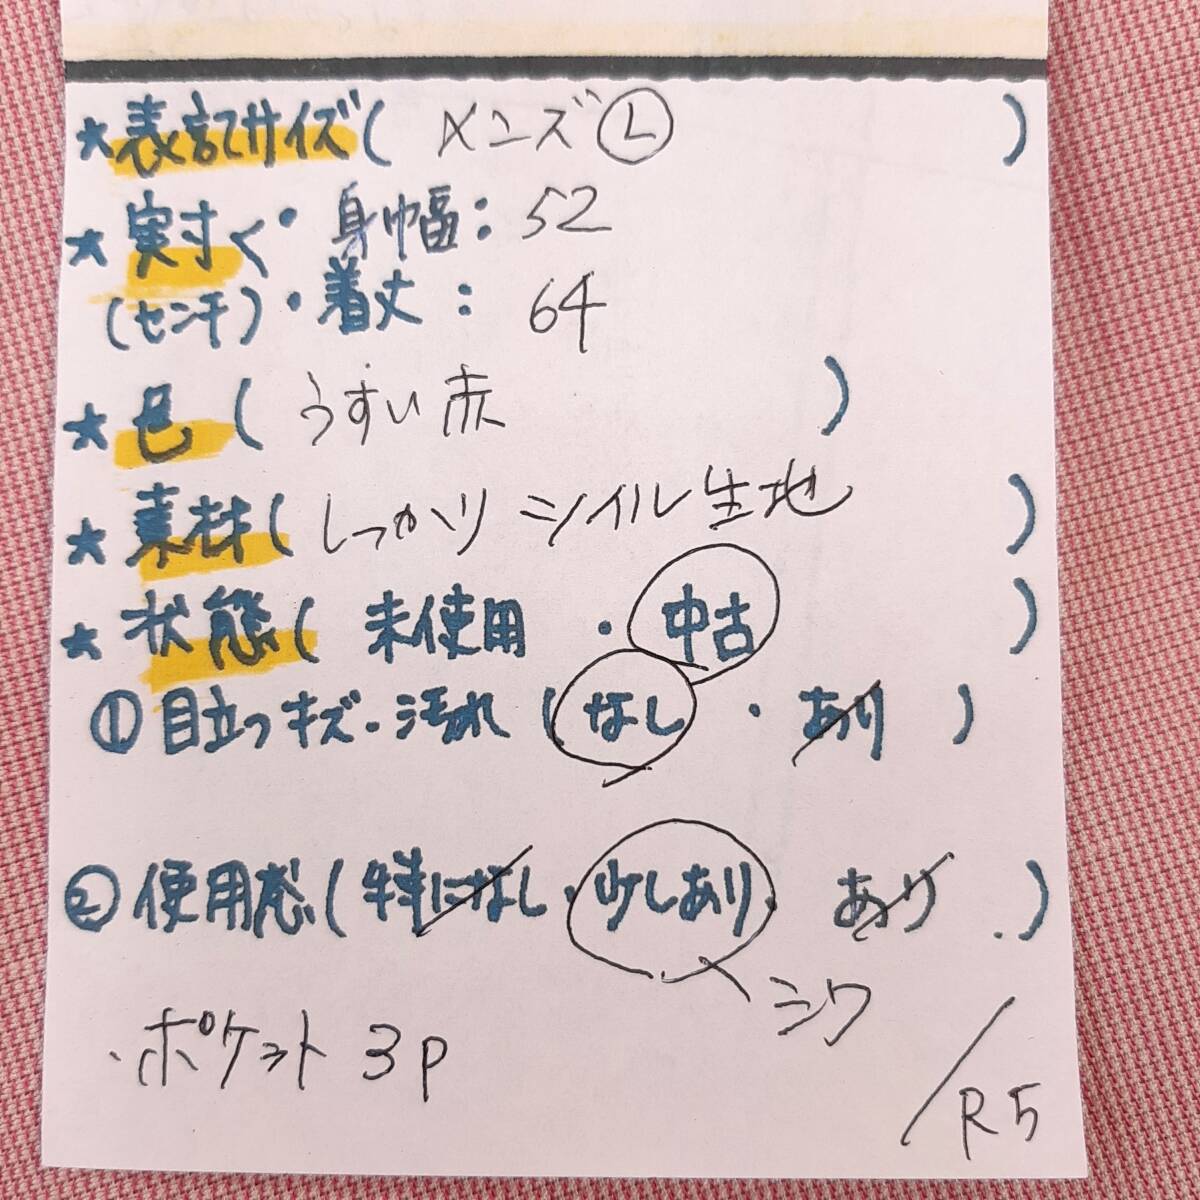 ★表記サイズ( メンズ Ⓛ )
★実寸く・身幅: 52
(センチ)・着丈: 64
★色( うすい赤 )
★素材( しっかりツイル生地 )
★状態( 未使用 ・ 中古 )
①目立つキズ・汚れ( なし ・ あり )
②使用感( 特になし・少しあり. あり . )
シワ
・ポケット 3p
/R5